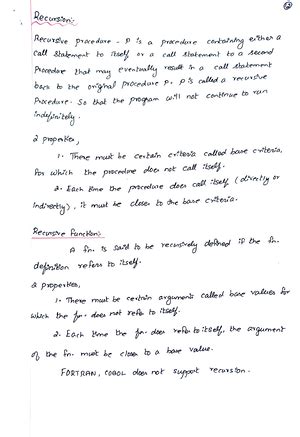 Recursion:-
Recursive procedure - P is a procedure containing either a
call statement to itself or a call statement to a second
Procedure that may eventually result in a call statement
back to the original procedure P. P is called a recursive
Procedure. So that the program will not continue to run
indefinitely.
2 properties,
1. There must be certain criteria called base criteria,
for which the procedure does not call itself.
2. Each time the procedure does call itself (directly or
indirectly), it must be closer to the base criteria.
Recursive function:-
A fn. is said to be recursively defined if the fn.
definition refers to itself.
2 properties,
1. There must be certain arguments called base values for
which the fn. does not refer to itself.
2. Each time the fn. does refer to itself, the argument
of the fn. must be closer to a base value.
FORTRAN, COBOL does not support recursion.